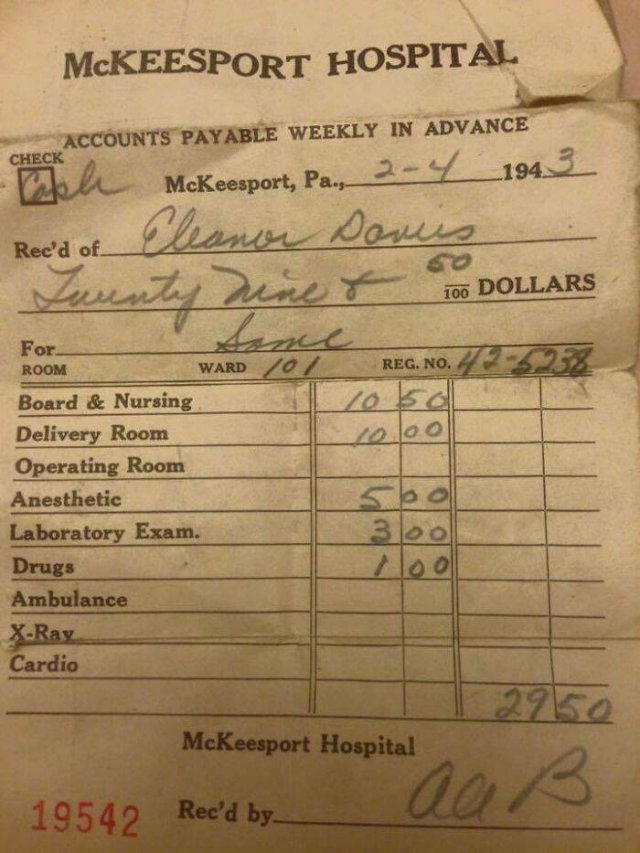 McKEESPORT HOSPITAL
ACCOUNTS PAYABLE WEEKLY IN ADVANCE
CHECK
Cash McKeesport, Pa., 2-4 1943
Rec'd of Eleanor Davies
Twenty Nine & 50/100 DOLLARS
For Same
ROOM WARD 101 REG. NO. 42-5238
Board & Nursing 10 50
Delivery Room 10 00
Operating Room
Anesthetic 5 00
Laboratory Exam. 3 00
Drugs 1 00
Ambulance
X-Ray
Cardio
29 50
McKeesport Hospital
19542 Rec'd by AAB